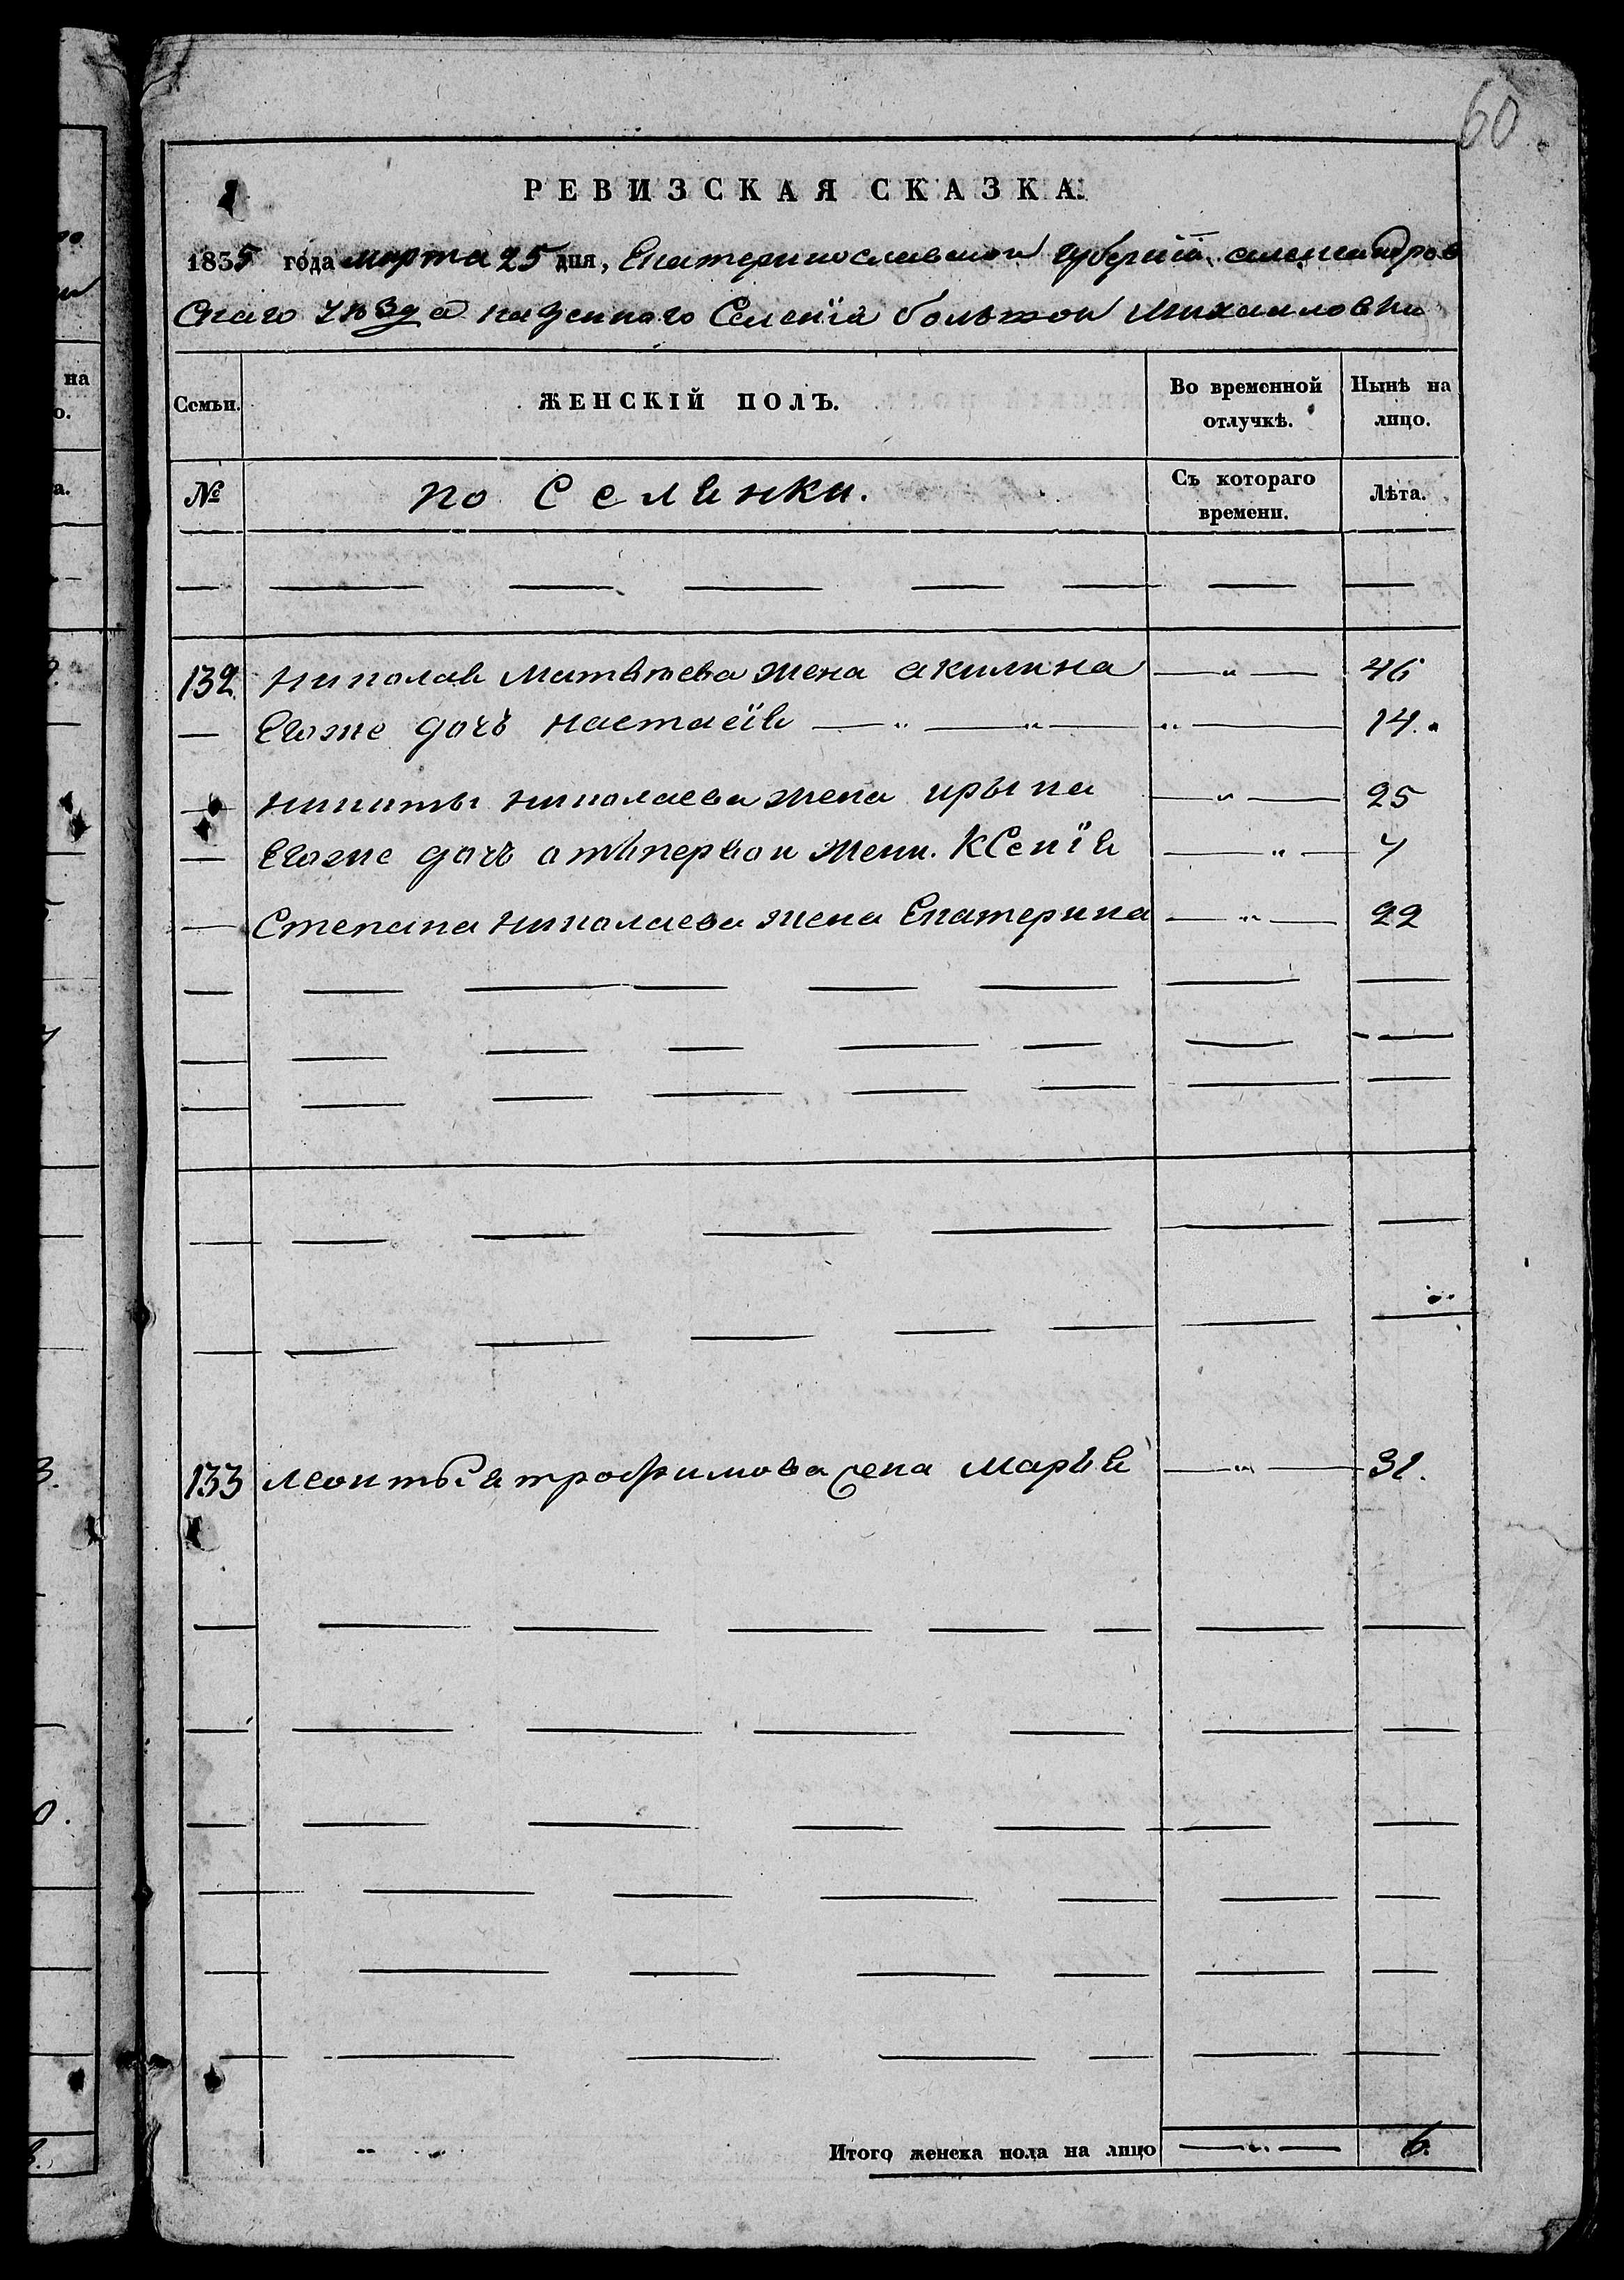 60.
РЕВИЗСКАЯ СКАЗКА.
1835 года марта 25 дня, Екатеринославской губернїи, александров
Скаго уѣзда казенного Селенїя большой Михаиловки
Семьи. ЖЕНСКІЙ ПОЛЪ. Во временной отлучкѣ. Нынѣ на лицо.
№ по Селянки. Съ котораго времени. Лѣта.
132 николая Матвѣева жена акилина — " — 46
— Егоже дочъ настасїя — " — " — " — 14.
— никиты николаева жена ирына — " — 25
— Егоже дочъ отъпервои жени. КСенїя — " — 4
— Степана николаева жена Екатерина — " — 22
133 леонтья трофимова жена марья — " — 31.
Итого женска пола на лицо — " — 6.
на
о.
а.
3.
0.